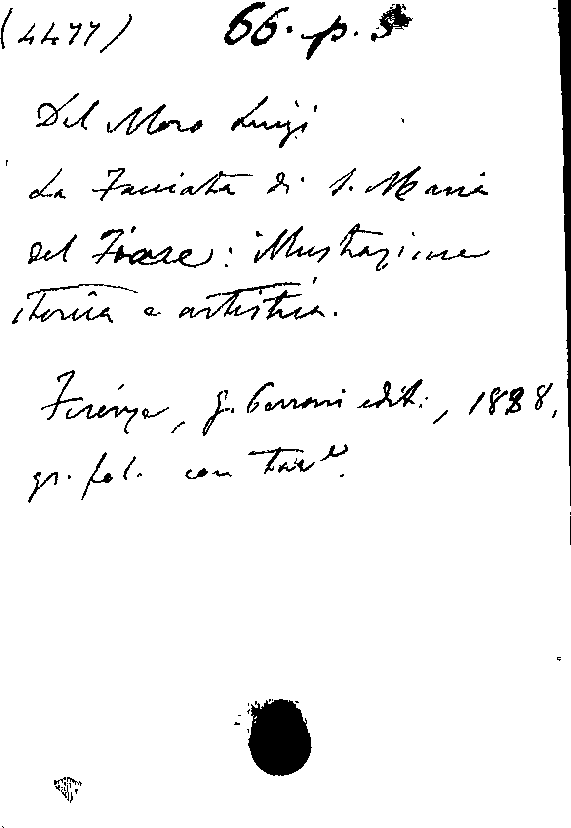 (4477) 66. p. 5
Del Moro Luigi
La Facciata di S. Maria
del Fiore: illustrazione
storica e artistica.
Firenze, G. edit., 1888,
gr. fol. con tav.